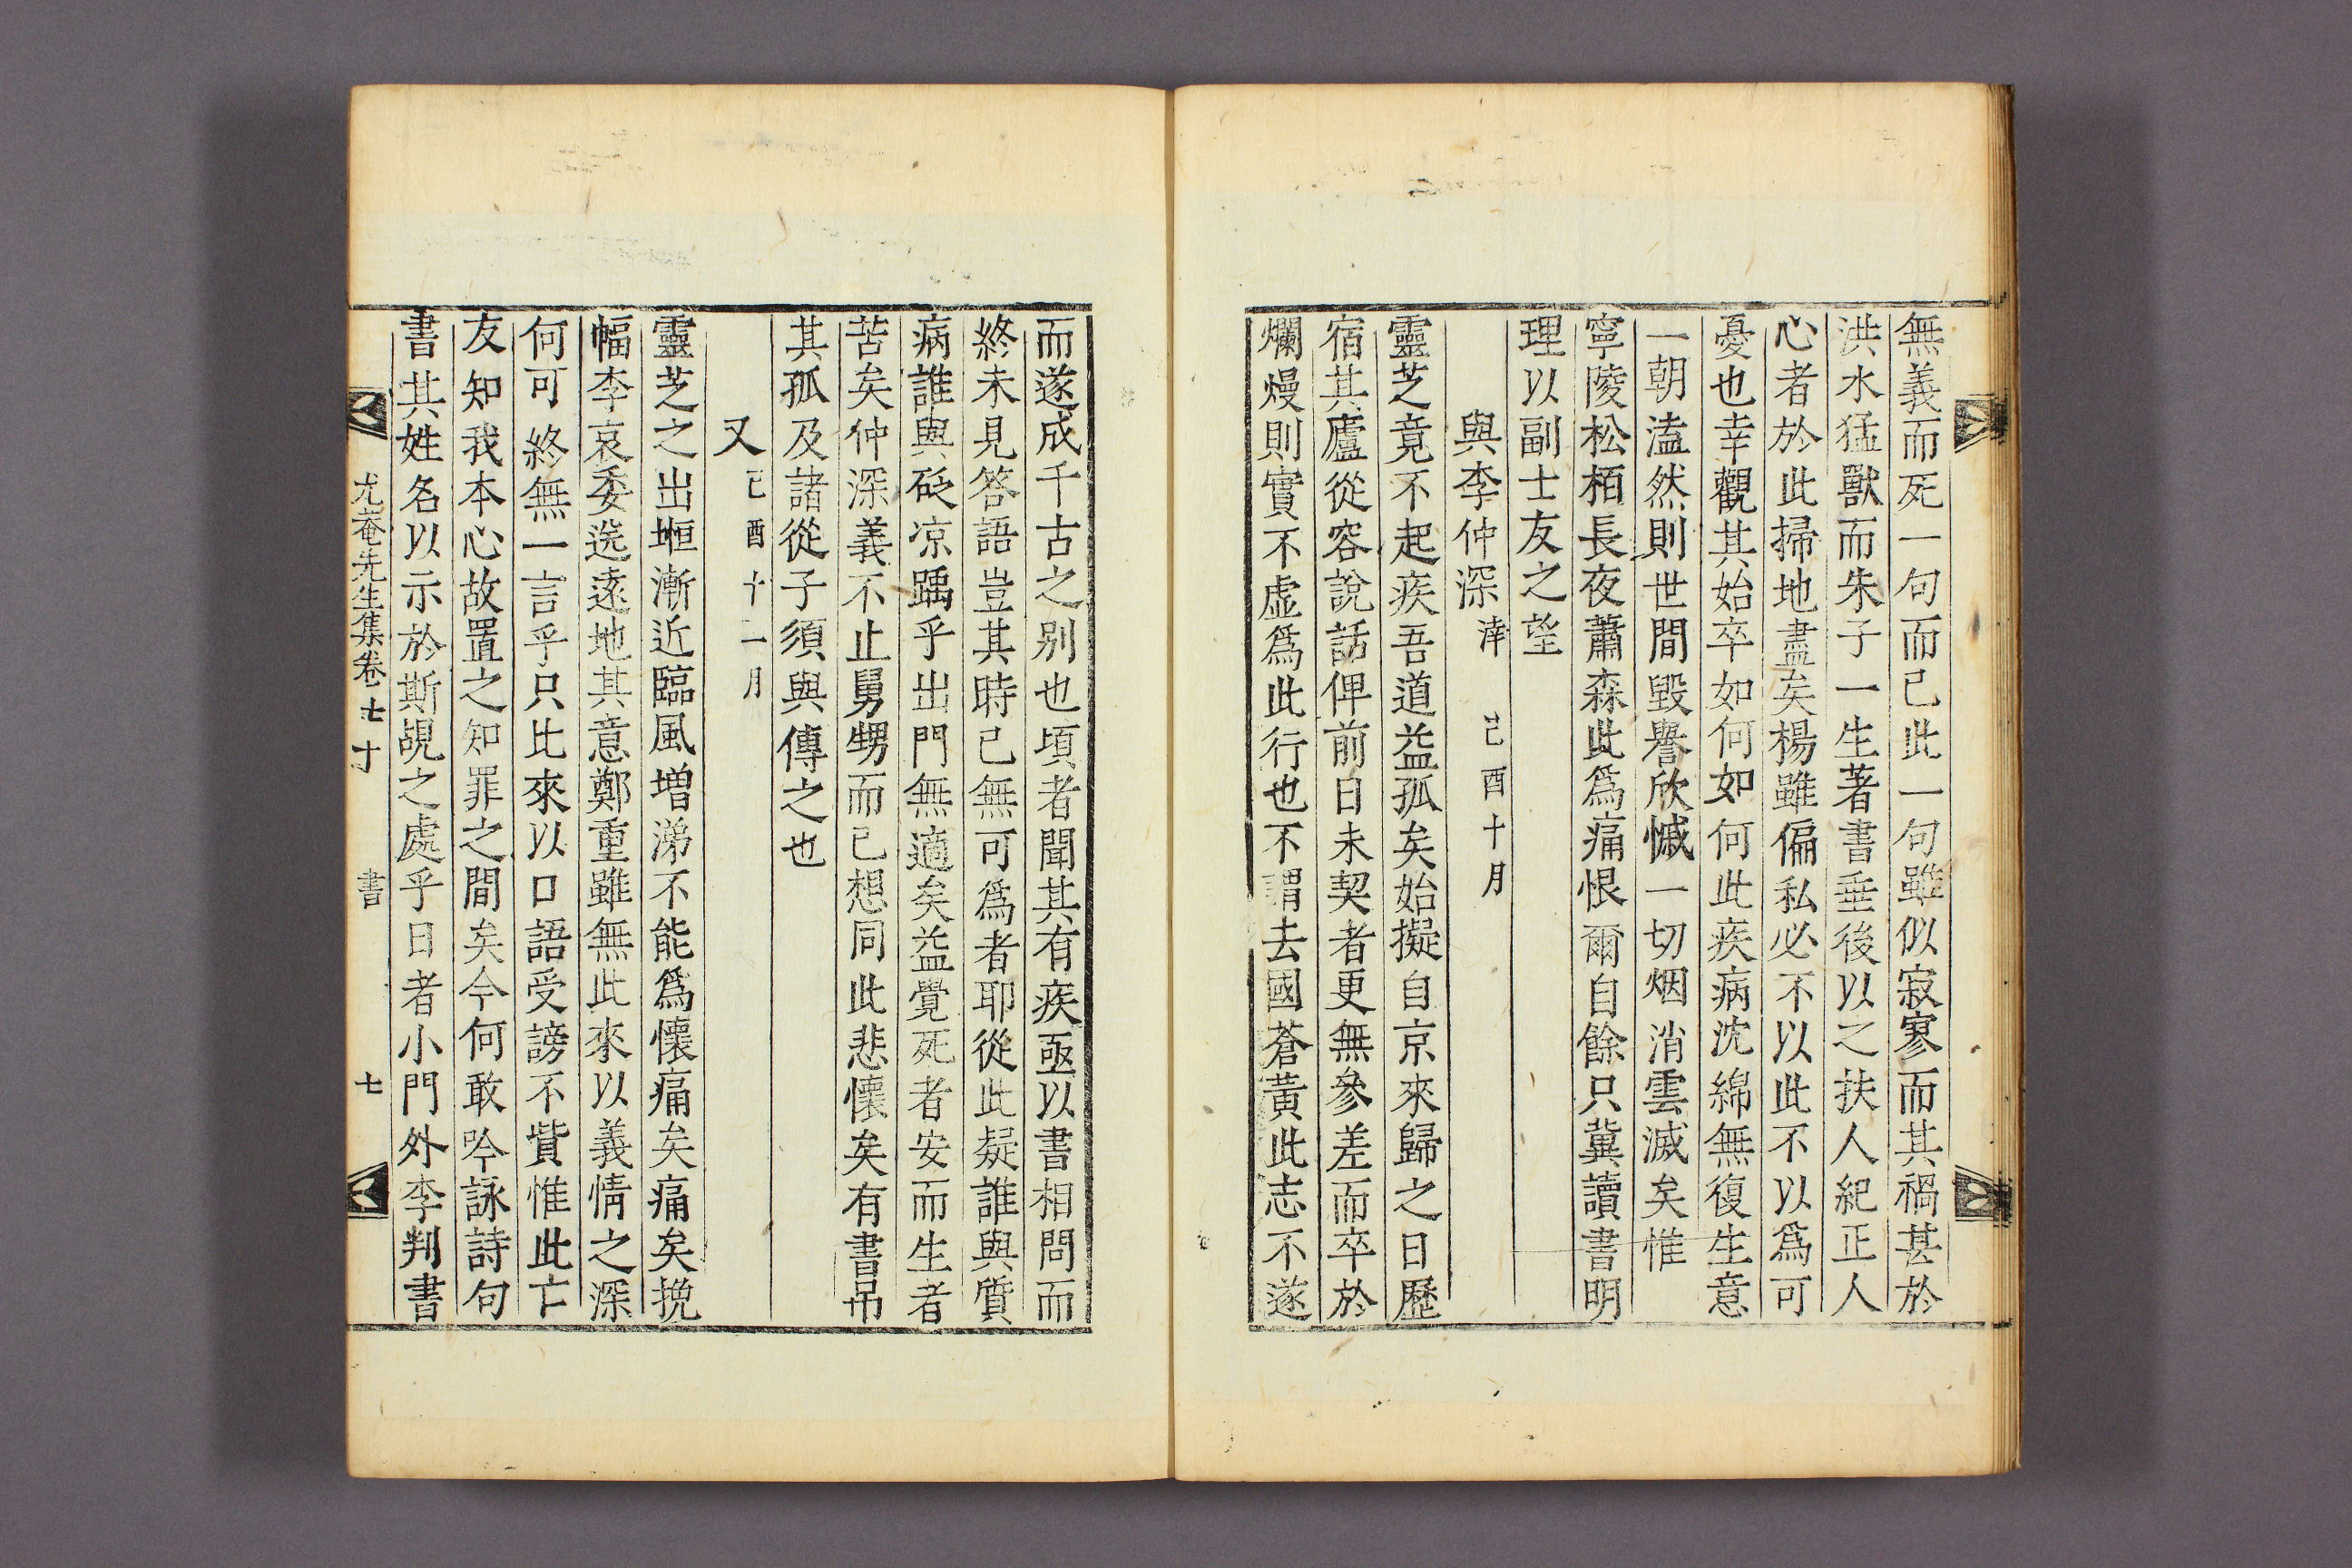 無義而死一句而已此一句雖似寂寥而其禍甚於
洪水猛獸而朱子一生著書垂後以之扶人紀正人
心者於此掃地盡矣楊雖偏私必不以此不以爲可
憂也幸觀其始卒如何如何此疾病沈綿無復生意
一朝溘然則世間毀譽欣慽一切烟消雲滅矣惟
寧陵松栢長夜蕭森此爲痛恨爾自餘只冀讀書明
理以副士友之望
與李仲深㴆 己酉十月
靈芝竟不起疾吾道益孤矣始擬自京來歸之日歷
宿其廬從容說話俾前日未契者更無參差而卒於
爛熳則實不虛爲此行也不謂去國蒼黃此志不遂
而遂成千古之別也頃者聞其有疾亟以書相問而
終未見答語豈其時已無可爲者耶從此疑誰與質
病誰與砭凉踽乎出門無適矣益覺死者安而生者
苦矣仲深義不止舅甥而已想同此悲懷矣有書吊
其孤及諸從子須與傳之也
又 己酉十二月
靈芝之出堩漸近臨風增涕不能爲懷痛矣痛矣挽
幅李哀委送遠地其意鄭重雖無此來以義情之深
何可終無一言乎只比來以口語受謗不貲惟此亡
友知我本心故置之知罪之間矣今何敢吟詠詩句
書其姓名以示於斯覩之處乎日者小門外李判書
尤菴先生集卷七十 書 七